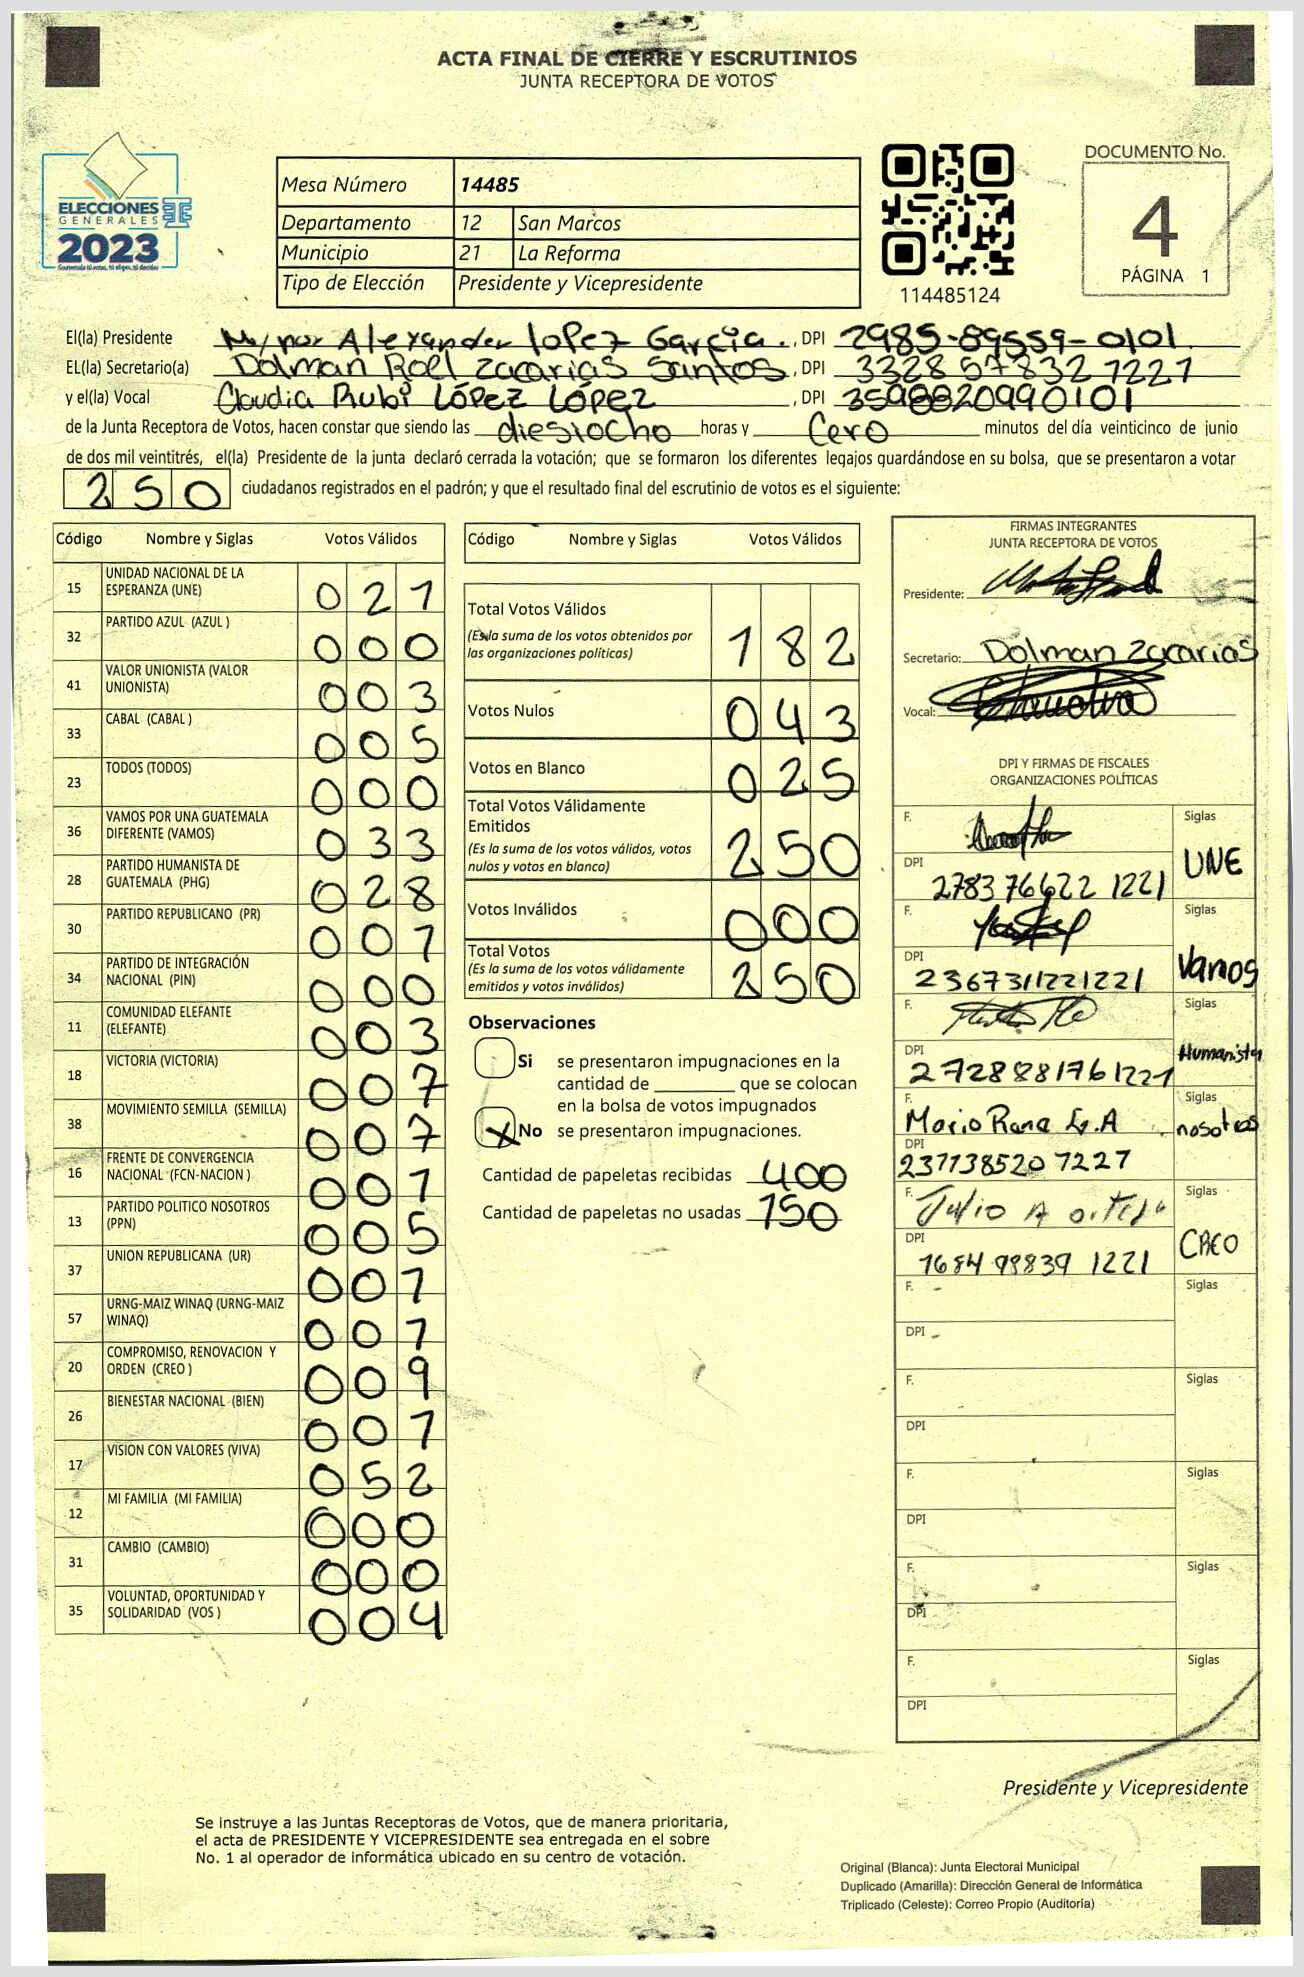 ACTA FINAL DE CIERRE Y ESCRUTINIOS
JUNTA RECEPTORA DE VOTOS
ELECCIONES
GENERALES
2023
Mesa Número 14485
Departamento 12 San Marcos
Municipio 21 La Reforma
Tipo de Elección Presidente y Vicepresidente
114485124
DOCUMENTO No.
4
PÁGINA 1
El(la) Presidente Maynor Alexander lopez García., DPI 2985-89559-0101
EL(la) Secretario(a) Dolman Roel zacarias Santos, DPI 3328 57832 1221
y el(la) Vocal Claudia Rubi LÓPEZ LÓPEZ, DPI 3598820990101
de la Junta Receptora de Votos, hacen constar que siendo las diesiocho horas y Cero minutos del día veinticinco de junio
de dos mil veintitrés, el(la) Presidente de la junta declaró cerrada la votación; que se formaron los diferentes legajos guardándose en su bolsa, que se presentaron a votar
250 ciudadanos registrados en el padrón; y que el resultado final del escrutinio de votos es el siguiente:
Código Nombre y Siglas Votos Válidos
15 UNIDAD NACIONAL DE LA ESPERANZA (UNE) 021
32 PARTIDO AZUL (AZUL ) 000
41 VALOR UNIONISTA (VALOR UNIONISTA) 003
33 CABAL (CABAL ) 005
23 TODOS (TODOS) 000
36 VAMOS POR UNA GUATEMALA DIFERENTE (VAMOS) 033
28 PARTIDO HUMANISTA DE GUATEMALA (PHG) 028
30 PARTIDO REPUBLICANO (PR) 001
34 PARTIDO DE INTEGRACIÓN NACIONAL (PIN) 000
11 COMUNIDAD ELEFANTE (ELEFANTE) 003
18 VICTORIA (VICTORIA) 007
38 MOVIMIENTO SEMILLA (SEMILLA) 007
16 FRENTE DE CONVERGENCIA NACIONAL (FCN-NACION ) 001
13 PARTIDO POLITICO NOSOTROS (PPN) 005
37 UNION REPUBLICANA (UR) 001
57 URNG-MAIZ WINAQ (URNG-MAIZ WINAQ) 001
20 COMPROMISO, RENOVACION Y ORDEN (CREO ) 009
26 BIENESTAR NACIONAL (BIEN) 001
17 VISION CON VALORES (VIVA) 052
12 MI FAMILIA (MI FAMILIA) 000
31 CAMBIO (CAMBIO) 000
35 VOLUNTAD, OPORTUNIDAD Y SOLIDARIDAD (VOS ) 004
Código Nombre y Siglas Votos Válidos
Total Votos Válidos
(Es la suma de los votos obtenidos por
las organizaciones politicas) 182
Votos Nulos 043
Votos en Blanco 025
Total Votos Válidamente
Emitidos
(Es la suma de los votos válidos, votos
nulos y votos en blanco) 250
Votos Inválidos 000
Total Votos
(Es la suma de los votos válidamente
emitidos y votos inválidos) 250
Observaciones
Si se presentaron impugnaciones en la
cantidad de ________ que se colocan
en la bolsa de votos impugnados
X No se presentaron impugnaciones.
Cantidad de papeletas recibidas 400
Cantidad de papeletas no usadas 150
FIRMAS INTEGRANTES
JUNTA RECEPTORA DE VOTOS
Presidente:
Secretario: Dolman zacarias
Vocal:
DPI Y FIRMAS DE FISCALES
ORGANIZACIONES POLÍTICAS
F. Siglas
UNE
DPI 2783 76622 1221
F. Siglas
Vamos
DPI 2367311221221
F. Siglas
Humanista
DPI 2728881761221
F. Mario Rene G.A Siglas
nosotros
DPI 237138520 1221
F. Julio A Siglas
CREO
DPI 1684 98839 1221
F. Siglas
DPI
F. Siglas
DPI
F. Siglas
DPI
F. Siglas
DPI
F. Siglas
DPI
Presidente y Vicepresidente
Se instruye a las Juntas Receptoras de Votos, que de manera prioritaria,
el acta de PRESIDENTE Y VICEPRESIDENTE sea entregada en el sobre
No. 1 al operador de informática ubicado en su centro de votación.
Original (Blanca): Junta Electoral Municipal
Duplicado (Amarilla): Dirección General de Informática
Triplicado (Celeste): Correo Propio (Auditoría)